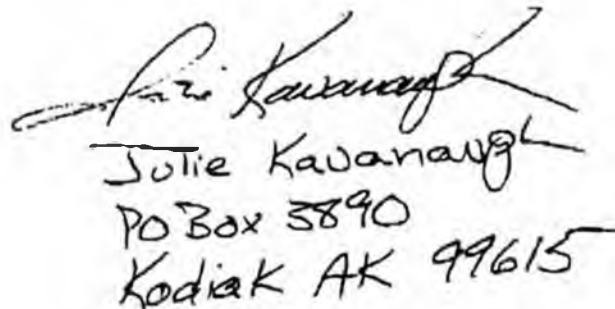 Julie Kavanaugh
Julie Kavanaugh
PO Box 3890
Kodiak AK 99615